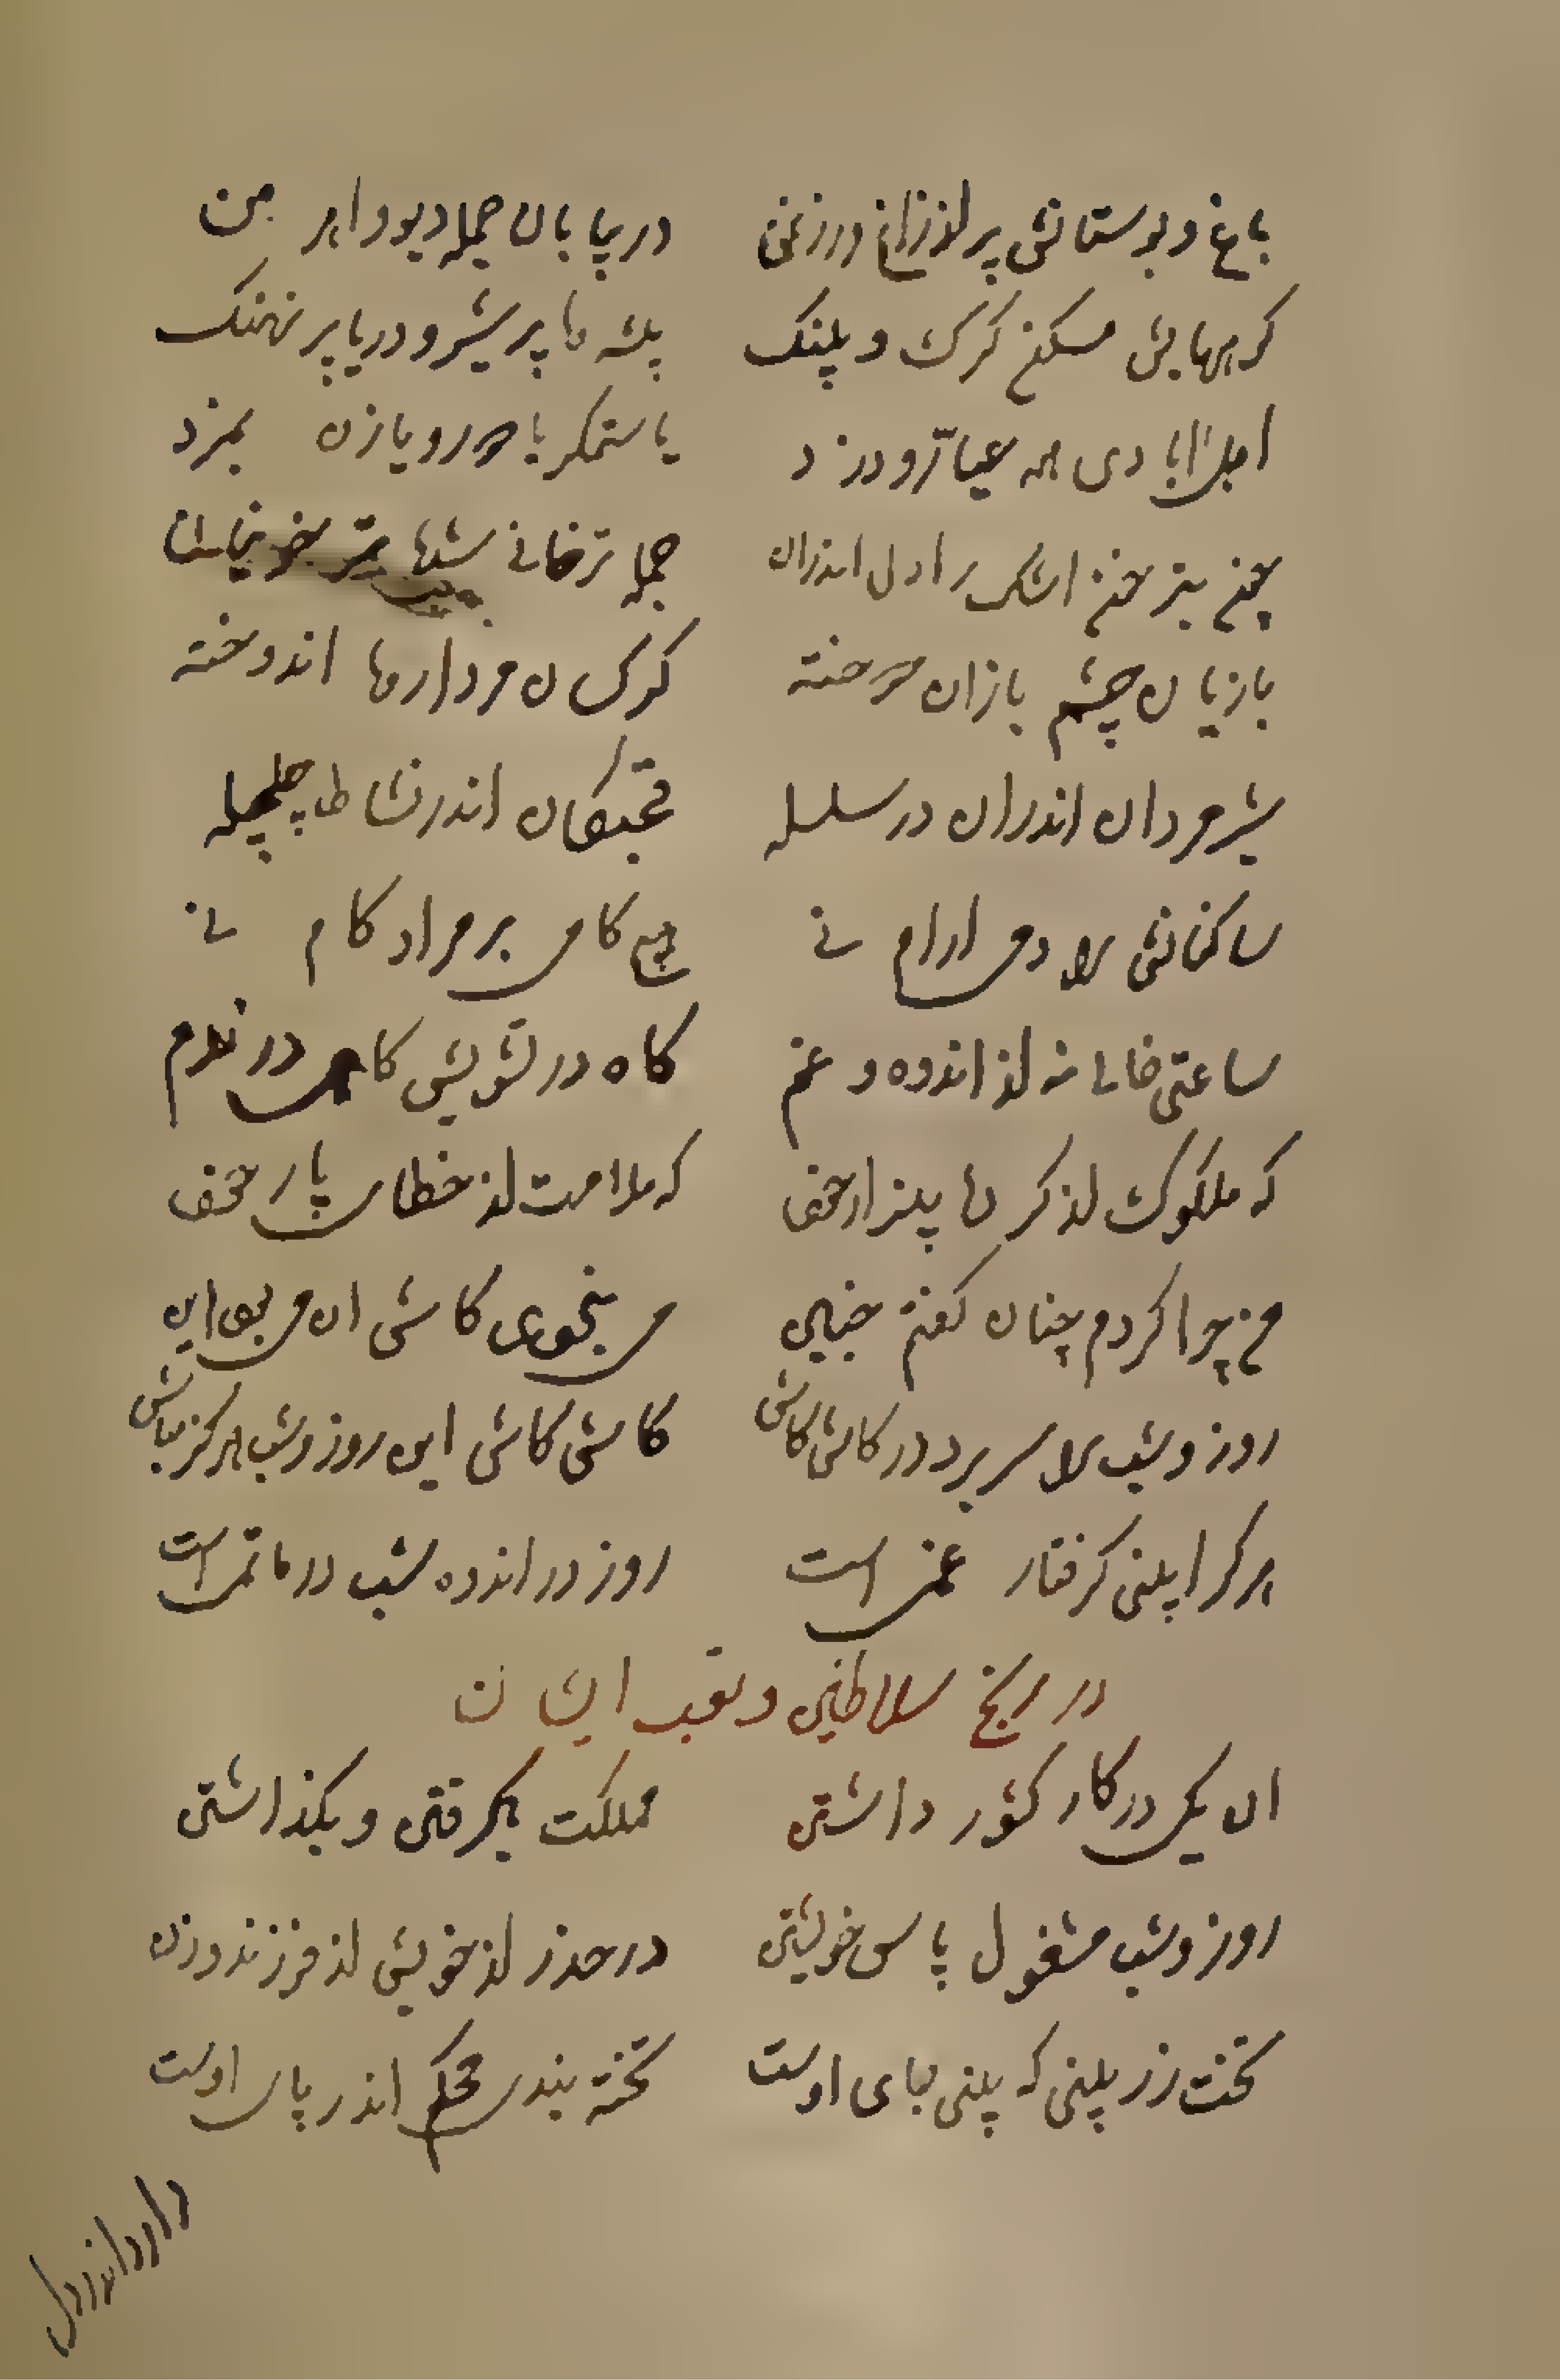 باغ و بوستانش پر از زاغ و زغن در بیابان جمله دیو و اهرمن
کوههایش مسکن کرک و پلنک بیشه ها پر شیر و دریا پر نهنک
اهل ابادی همه عیار و دزد یا ستمکر یا و یا زن بمزد
اشک را دل اندران جمله
بازیان چشم بازان دوخته کرکسان مردارها اندوخته
شیر مردان اندران در سلسله قحبکان اندر نشاط
ساکنانش را دمی ارام نی هیچ کامی بر مراد کام نی
ساعتی خالی نه از اندوه و غم کاه در تشویش کاهی در ندم
که ملوک از کرد که ملامت از خطای
من چرا کردم چنان کفتم چنین می بخوری کاش ان می بود این
روز و شب را سر برد در کاش کاش کاش کاش این روز و شب هرکز مباش
هر کرا بینی کرفتار غم است روز در اندوه شب در ماتم است
در رنج سلاطین و تعب ایشان
ان یکی در کار کشور داشتن مملکت بکرفتن و بکذاشتن
روز و شب مشغول پاس خویشتن در حذر از خویش از فرزند و زن
تخت زر بینی که بینی جای اوست تخته بندی محکم اندر پای اوست
دارد اندر دل